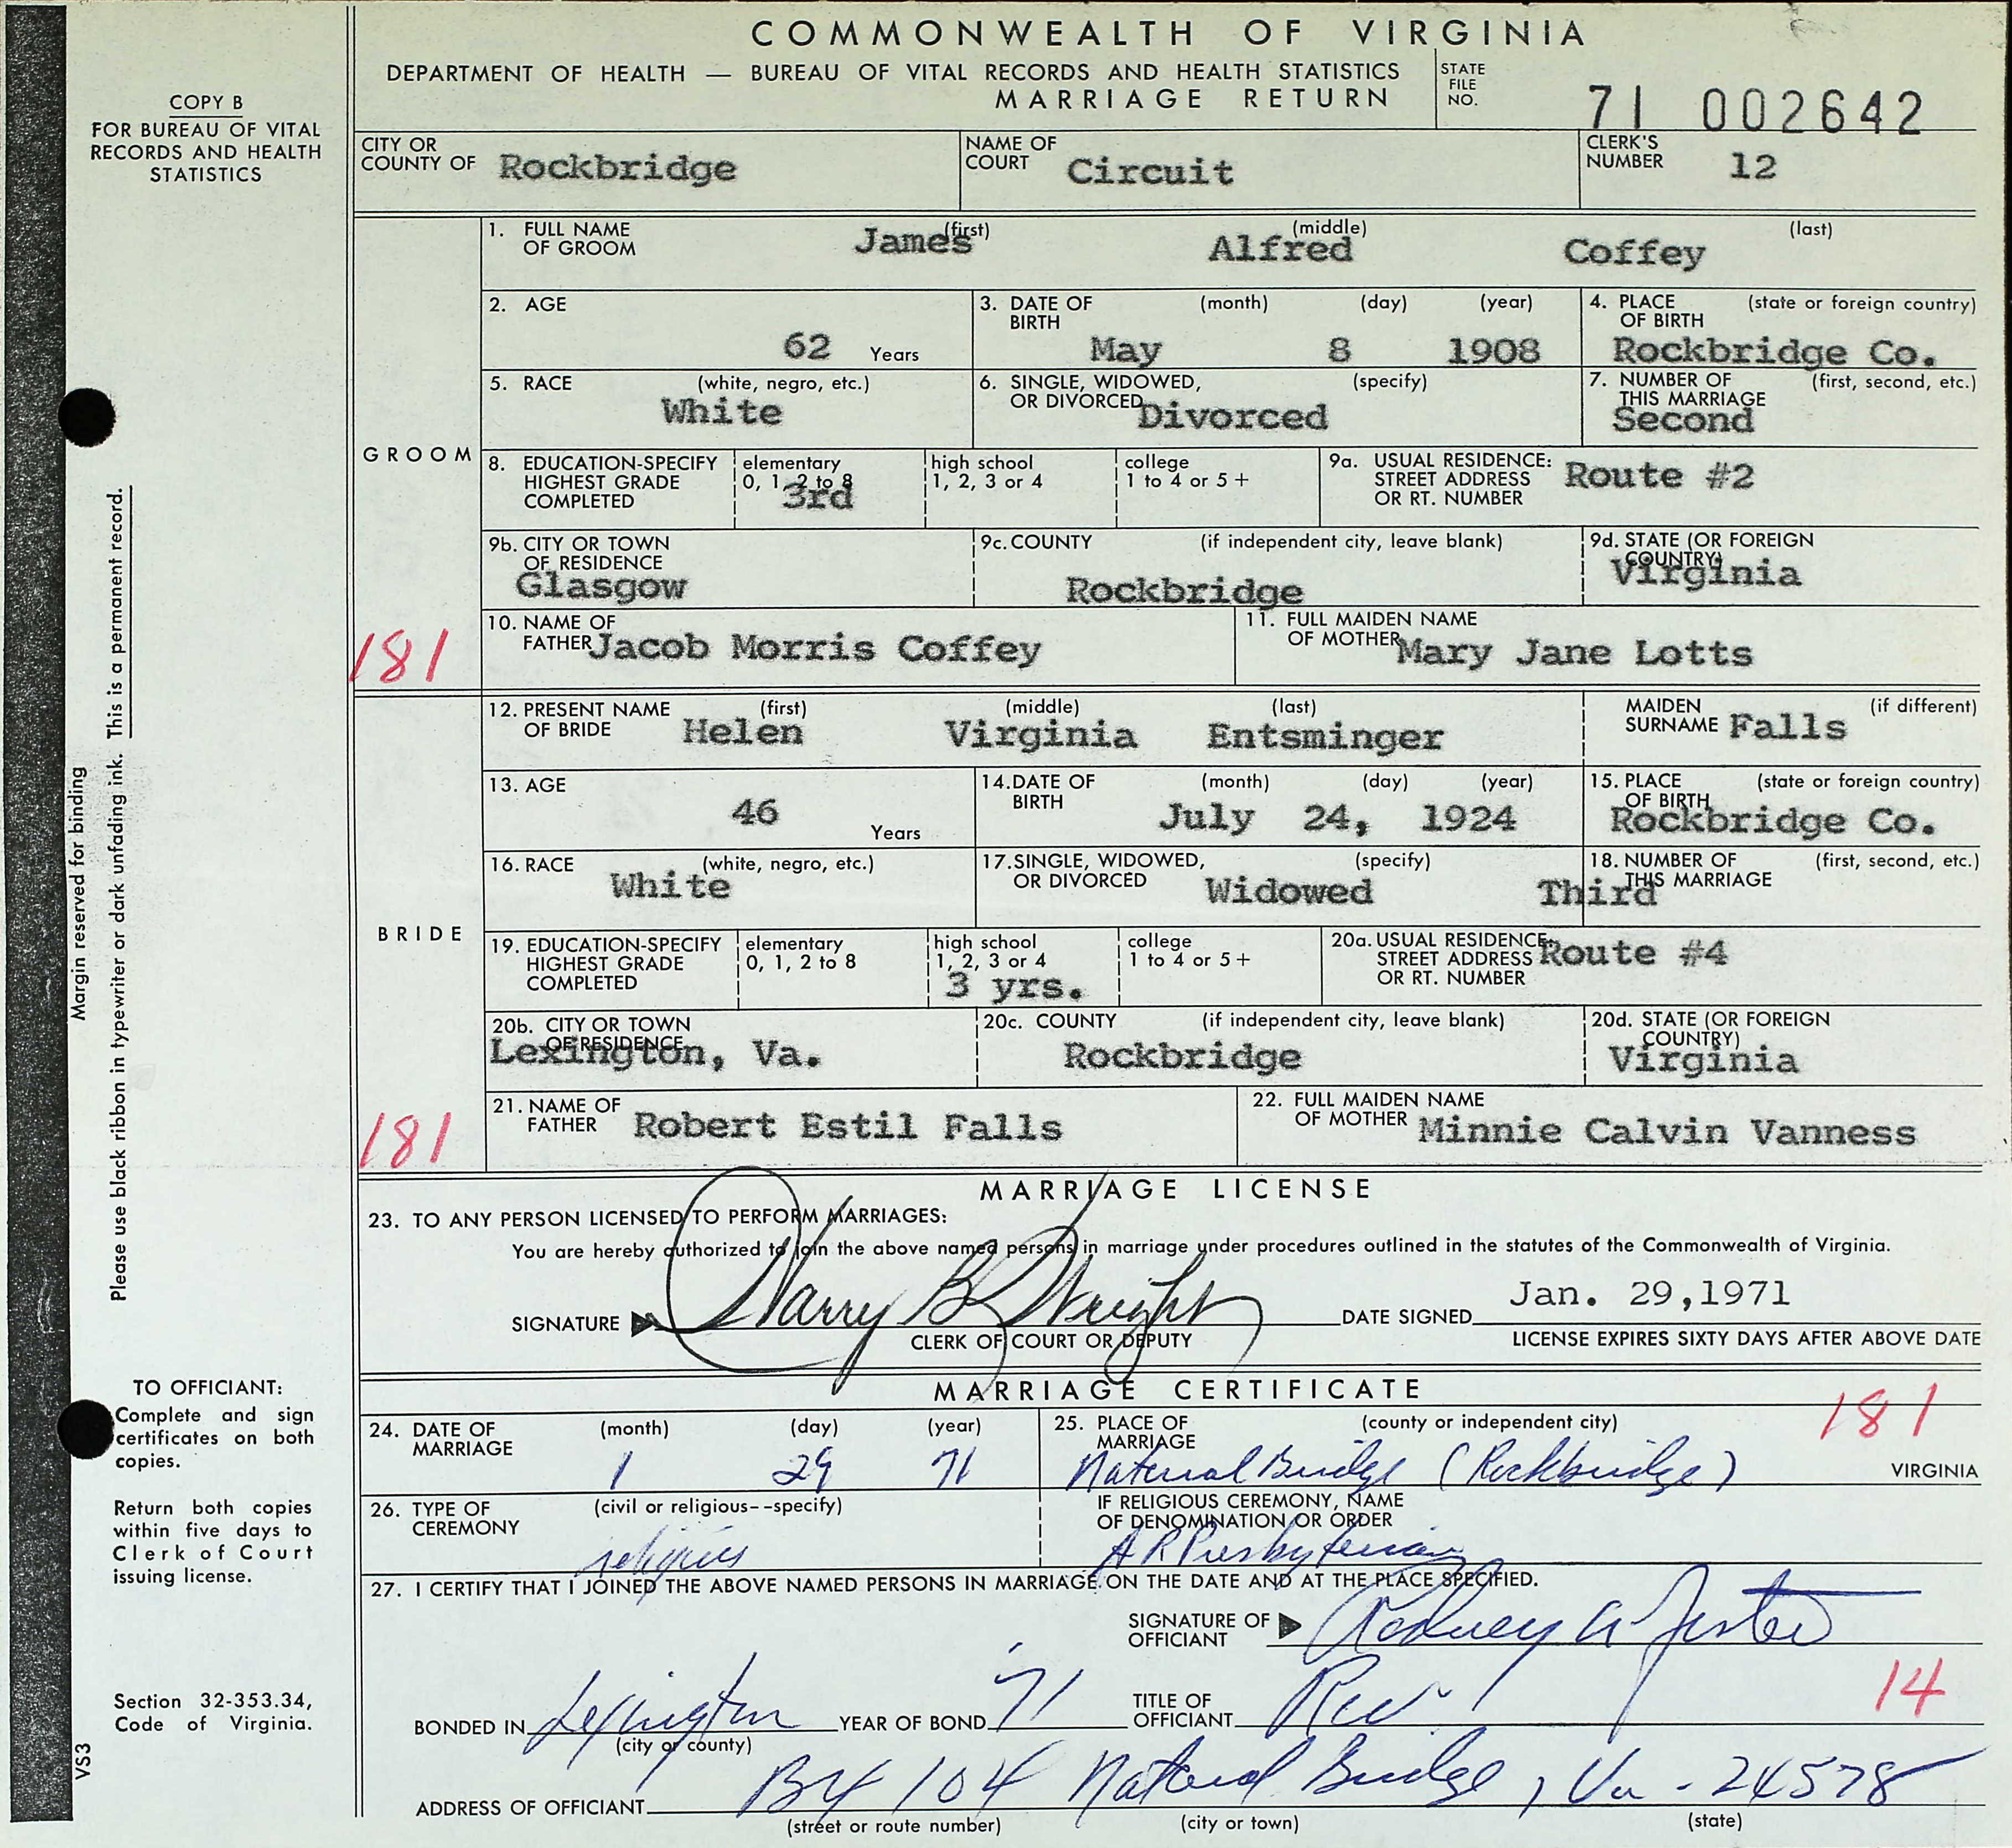 COMMONWEALTH OF VIRGINIA
DEPARTMENT OF HEALTH — BUREAU OF VITAL RECORDS AND HEALTH STATISTICS
MARRIAGE RETURN
STATE FILE NO. 71 002642
COPY B
FOR BUREAU OF VITAL
RECORDS AND HEALTH
STATISTICS
CITY OR COUNTY OF Rockbridge NAME OF COURT Circuit CLERK'S NUMBER 12
GROOM
1. FULL NAME OF GROOM (first) James (middle) Alfred (last) Coffey
2. AGE 62 Years 3. DATE OF BIRTH (month) May (day) 8 (year) 1908 4. PLACE OF BIRTH (state or foreign country) Rockbridge Co.
5. RACE (white, negro, etc.) White 6. SINGLE, WIDOWED, OR DIVORCED (specify) Divorced 7. NUMBER OF THIS MARRIAGE (first, second, etc.) Second
8. EDUCATION-SPECIFY HIGHEST GRADE COMPLETED elementary 0, 1, 2 to 8 3rd high school 1, 2, 3 or 4 college 1 to 4 or 5+ 9a. USUAL RESIDENCE: STREET ADDRESS OR RT. NUMBER Route #2
9b. CITY OR TOWN OF RESIDENCE Glasgow 9c. COUNTY (if independent city, leave blank) Rockbridge 9d. STATE (OR FOREIGN COUNTRY) Virginia
10. NAME OF FATHER Jacob Morris Coffey 11. FULL MAIDEN NAME OF MOTHER Mary Jane Lotts
181
BRIDE
12. PRESENT NAME OF BRIDE (first) Helen (middle) Virginia (last) Entsminger MAIDEN SURNAME (if different) Falls
13. AGE 46 Years 14. DATE OF BIRTH (month) July (day) 24, (year) 1924 15. PLACE OF BIRTH (state or foreign country) Rockbridge Co.
16. RACE (white, negro, etc.) White 17. SINGLE, WIDOWED, OR DIVORCED (specify) Widowed 18. NUMBER OF THIS MARRIAGE (first, second, etc.) Third
19. EDUCATION-SPECIFY HIGHEST GRADE COMPLETED elementary 0, 1, 2 to 8 high school 1, 2, 3 or 4 3 yrs. college 1 to 4 or 5+ 20a. USUAL RESIDENCE: STREET ADDRESS OR RT. NUMBER Route #4
20b. CITY OR TOWN OF RESIDENCE Lexington, Va. 20c. COUNTY (if independent city, leave blank) Rockbridge 20d. STATE (OR FOREIGN COUNTRY) Virginia
21. NAME OF FATHER Robert Estil Falls 22. FULL MAIDEN NAME OF MOTHER Minnie Calvin Vanness
181
MARRIAGE LICENSE
23. TO ANY PERSON LICENSED TO PERFORM MARRIAGES:
You are hereby authorized to join the above named persons in marriage under procedures outlined in the statutes of the Commonwealth of Virginia.
SIGNATURE Harry B Wright DATE SIGNED Jan. 29,1971
CLERK OF COURT OR DEPUTY LICENSE EXPIRES SIXTY DAYS AFTER ABOVE DATE
MARRIAGE CERTIFICATE
181
24. DATE OF MARRIAGE (month) 1 (day) 29 (year) 71 25. PLACE OF MARRIAGE (county or independent city) Natural Bridge (Rockbridge) VIRGINIA
26. TYPE OF CEREMONY (civil or religious--specify) religious IF RELIGIOUS CEREMONY, NAME OF DENOMINATION OR ORDER A R Presbyterian
27. I CERTIFY THAT I JOINED THE ABOVE NAMED PERSONS IN MARRIAGE ON THE DATE AND AT THE PLACE SPECIFIED.
SIGNATURE OF OFFICIANT Rodney A
14
BONDED IN Lexington YEAR OF BOND '71 TITLE OF OFFICIANT Rev.
(city or county)
ADDRESS OF OFFICIANT 104 Natural Bridge, Va - 24578
(street or route number) (city or town) (state)
Margin reserved for binding
Please use black ribbon in typewriter or dark unfading ink. This is a permanent record.
TO OFFICIANT:
Complete and sign
certificates on both
copies.
Return both copies
within five days to
Clerk of Court
issuing license.
Section 32-353.34,
Code of Virginia.
VS3